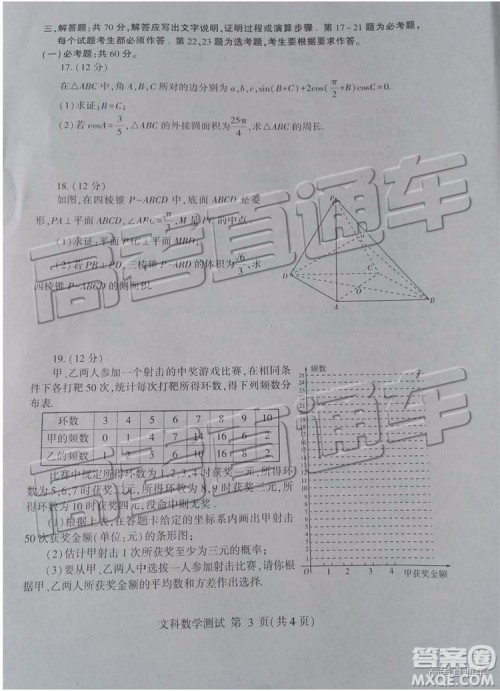 三、解答题:共 70 分,解答应写出文字说明,证明过程或演算步骤.第 17~21 题为必考题,
每个试题考生都必须作答.第 22,23 题为选考题,考生要根据要求作答.
(一)必考题:共 60 分.
17.(12 分)
在△ABC 中,角 A,B,C 所对的边分别为 a,b,c,sin(B+C)+2cos(π/2+B)cosC=0.
(1)求证:B=C;
(2)若 cosA=3/5,△ABC 的外接圆面积为25π/4,求△ABC 的周长.
18.(12 分)
如图,在四棱锥 P-ABCD 中,底面 ABCD 是菱
形,PA⊥平面 ABCD,∠ABC=π/3,M 是 PC 的中点.
(1)求证:平面 PAC⊥平面 MBD;
(2)若 PB⊥PD,三棱锥 P-ABD 的体积为√6/3,求
四棱锥 P-ABCD 的侧面积.
P
D
C
O
A
B
19.(12 分)
甲、乙两人参加一个射击的中奖游戏比赛,在相同条
件下各打靶 50 次,统计每次打靶所得环数,得下列频数分
布表.
环数 3 4 5 6 7 8 9 10
甲的频数 0 1 4 7 14 16 6 2
乙的频数 1 2 5 6 10 16 8 2
比赛中规定所得环数为 1,2,3,4 时获奖一元,所得环
数为 5,6,7 时获奖二元,所得环数为 8,9 时获奖三元,所得
环数为 10 时获奖四元,没命中则无奖.
(1)根据上表,在答题卡给定的坐标系内画出甲射击
50 次获奖金额(单位:元)的条形图;
(2)估计甲射击 1 次所获奖至少为三元的概率;
(3)要从甲、乙两人中选拔一人参加射击比赛,请你根
据甲、乙两人所获奖金额的平均数和方差作出选择.
频数
0 1 2 3 4 甲获奖金额
文科数学测试 第 3 页(共 4 页)
高考直通车
答案圈
MXQE.COM